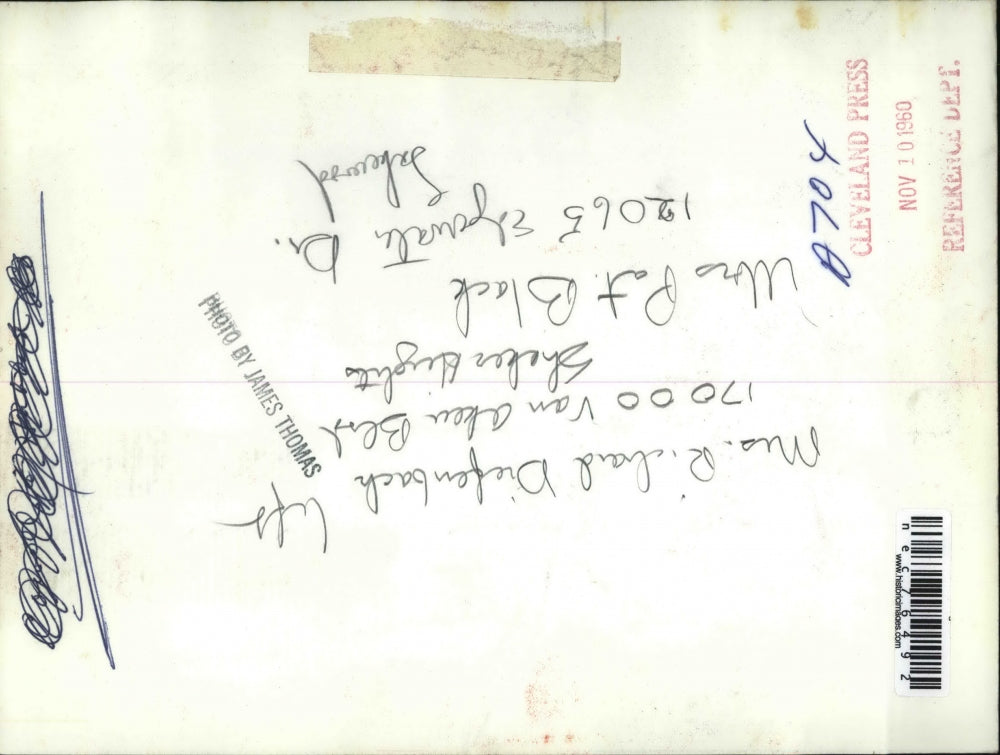 CLEVELAND PRESS
NOV 10 1960
REFERENCE DEPT.
left
Mrs. Richard Diefenbach
17000 Van Aken Blvd
Shaker Heights
Mrs Pat. Black
12065 Edgewater Dr.
Lakewood
PHOTO BY JAMES THOMAS
nec76492
www.historicimages.com